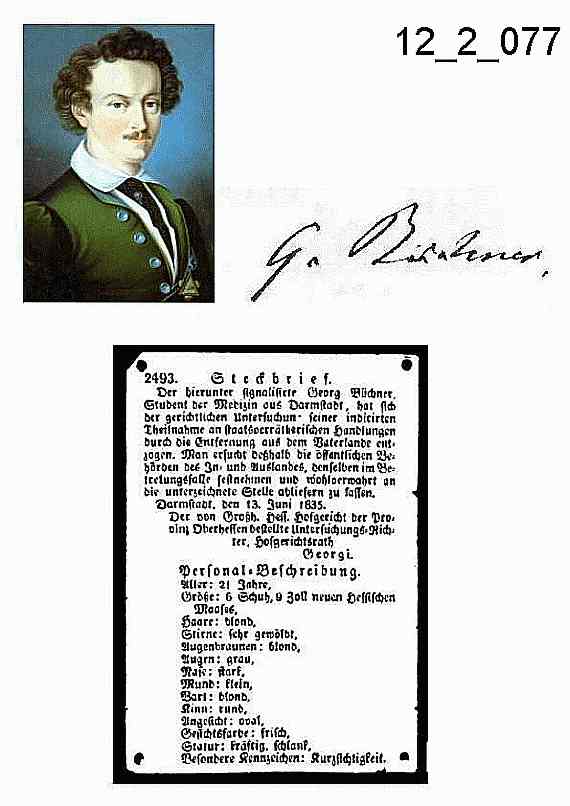 12_2_077
G. Büchner.
2493. Steckbrief.
Der hierunter signalisirte Georg Büchner,
Student der Medizin aus Darmstadt, hat sich
der gerichtlichen Untersuchung seiner indicirten
Theilnahme an staatsverrätherischen Handlungen
durch die Entfernung aus dem Vaterlande ent-
zogen. Man ersucht deßhalb die öffentlichen Be-
hörden des In- und Auslandes, denselben im Be-
tretungsfalle festnehmen und wohlverwahrt an
die unterzeichnete Stelle abliefern zu lassen.
Darmstadt, den 13. Juni 1835.
Der von Großh. Hess. Hofgericht der Pro-
vinz Oberhessen bestellte Untersuchungs-Rich-
ter, Hofgerichtsrath
Georgi.
Personal-Beschreibung.
Alter: 21 Jahre,
Größe: 6 Schuh, 9 Zoll neuen Hessischen
Maases,
Haare: blond,
Stirne: sehr gewölbt,
Augenbraunen: blond,
Augen: grau,
Nase: stark,
Mund: klein,
Bart: blond,
Kinn: rund,
Angesicht: oval,
Gesichtsfarbe: frisch,
Statur: kräftig, schlank,
Besondere Kennzeichen: Kurzsichtigkeit.